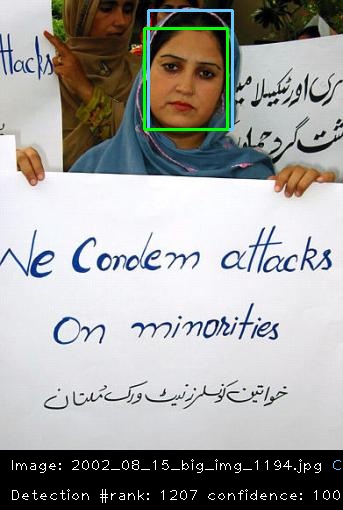 ttacks
We Condem attacks
On minorities
خواتین کونسلرز نیٹ ورک ملتان
Image: 2002_08_15_big_img_1194.jpg C
Detection #rank: 1207 confidence: 100